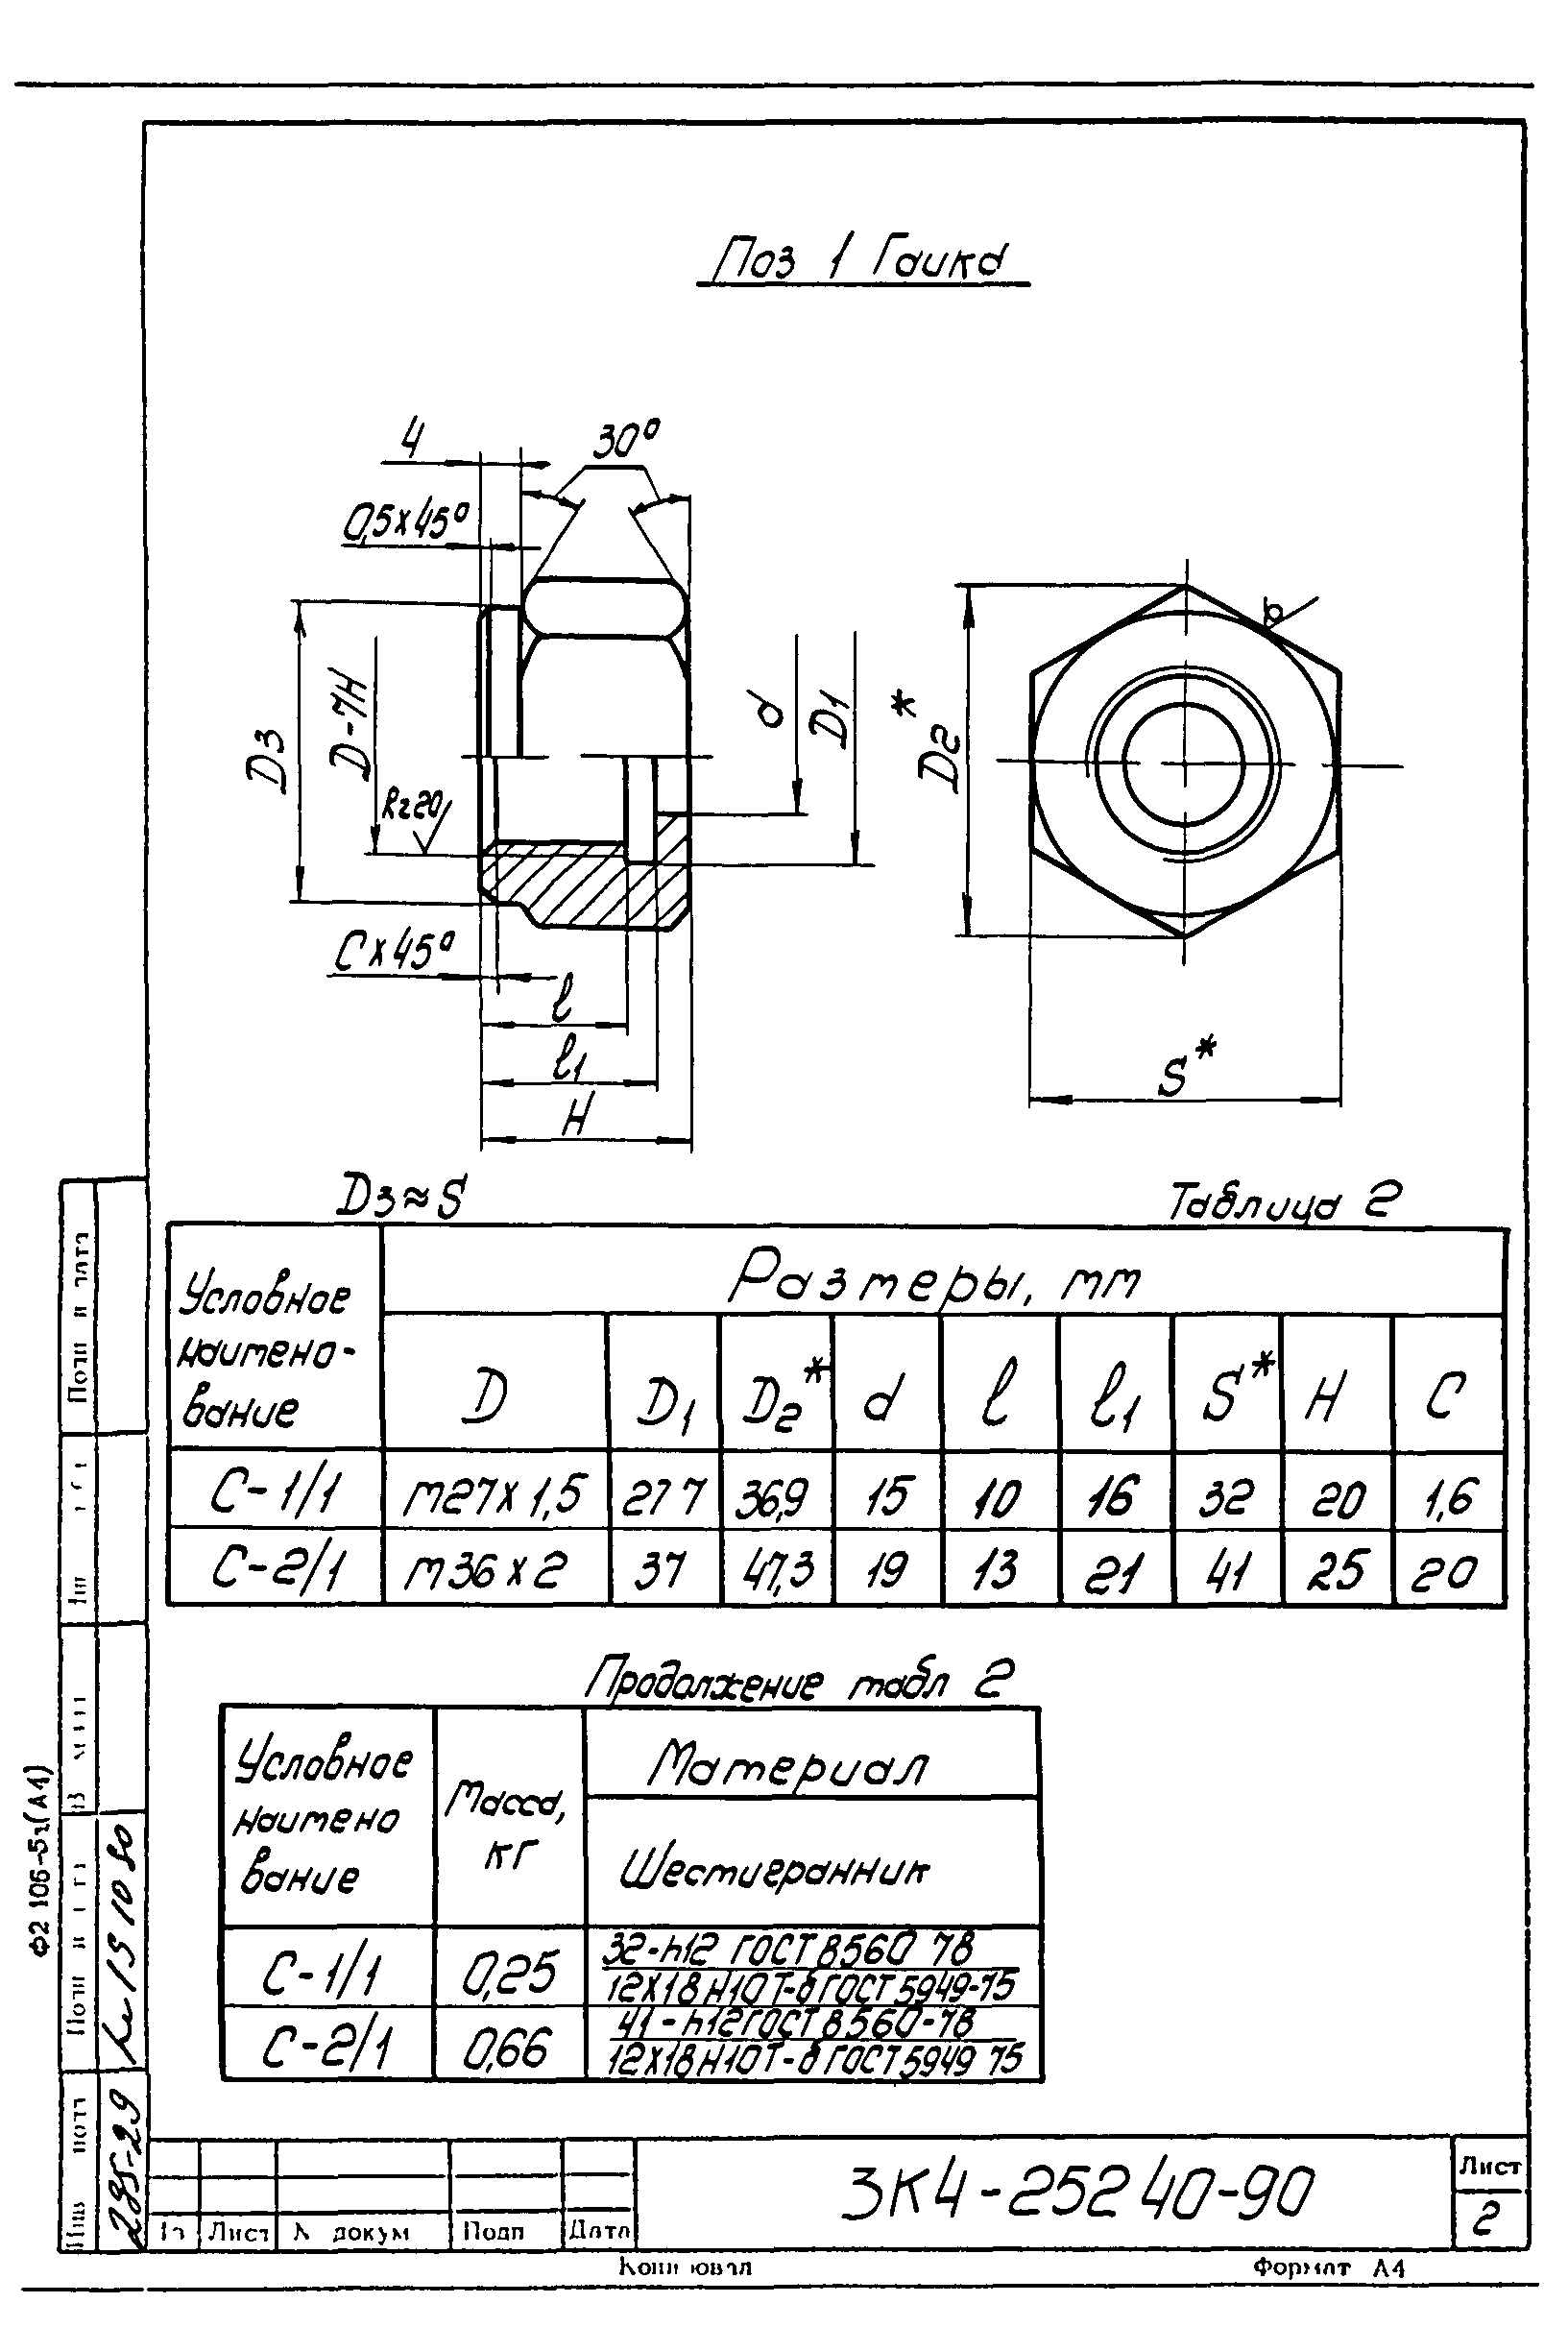 Поз 1 Гаика
4
30°
0,5х45°
D3
D-7H
Rz20
d
D1
D2*
Cх45°
l
l1
H
S*
D3≈S
Таблица 2
Условное наимено-вание
Размеры, мм
D D1 D2* d l l1 S* H C
С-1/1 м27х1,5 27 7 36,9 15 10 16 32 20 1,6
С-2/1 м36х2 37 47,3 19 13 21 41 25 20
Продолжение табл 2
Условное наимено вание
Масса, кг
Материал
Шестигранник
С-1/1 0,25
32-h12 ГОСТ 8560 78
12Х18Н10Т-б ГОСТ 5949-75
С-2/1 0,66
41-h12 ГОСТ 8560-78
12Х18Н10Т-б ГОСТ 5949 75
Ф2 106-5г(А4)
15 10 80
285-29
Лист
докум
Подп
Дата
ЗК4-25240-90
Лист
2
Формат А4